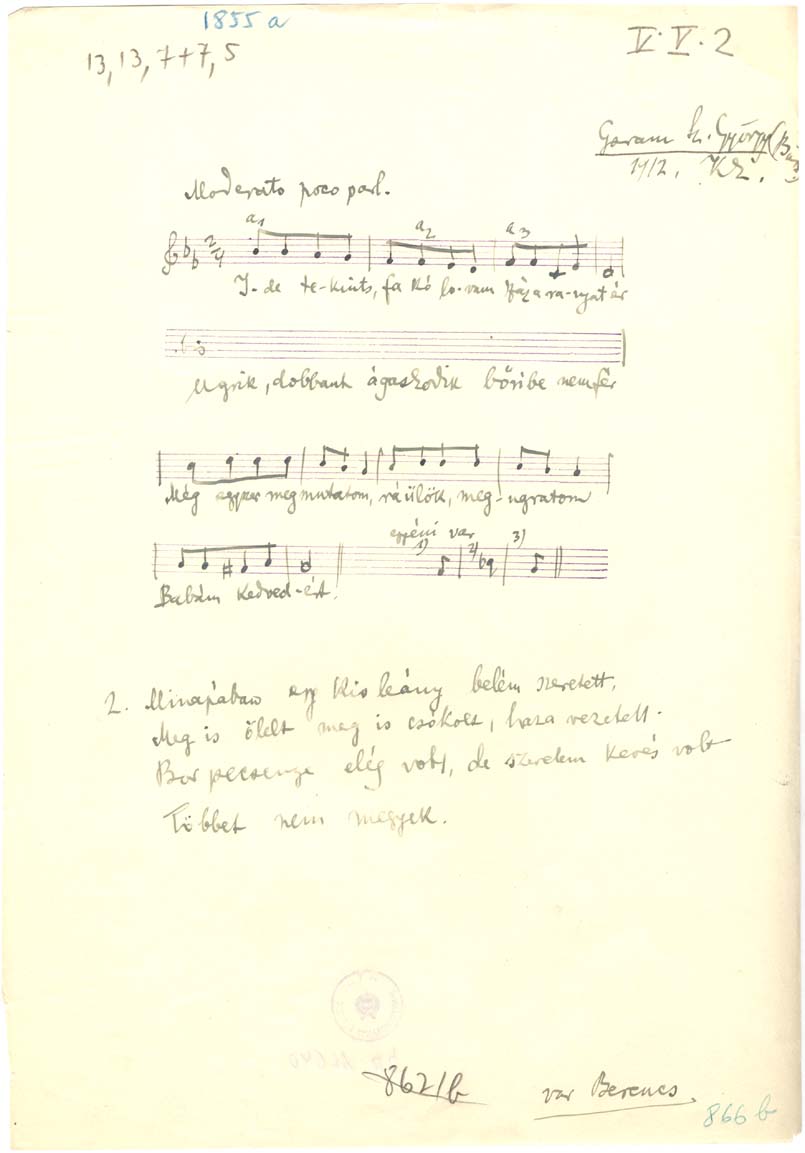 1855 a
13, 13, 7+7, 5
V. V. 2
Garam Sz. György
1912. KZ.
Moderato poco parl.
a1 a2 a3
2/4
I-de te-kints, fa kó lo-vam ráz a ra-nyat ér
Ugrik, dobbant ágaskodik bőribe nem fér
Még egyszer megmutatom, ráülök, meg-ugratom
egyéni var
1) 2) 3)
Babám kedved-ért!
2. Minapában egy kis leány belém szeretett,
Meg is ölelt meg is csókolt, haza vezetett.
Bor pecsenye elég volt, de szerelem kevés volt
Többet nem megyek.
862/b
var Berencs.
866 b